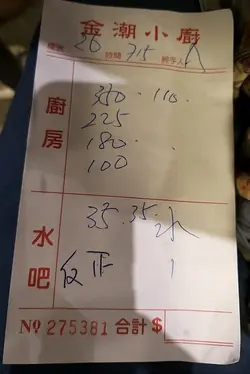 金潮小廚
檯號 26 時間 715 經手人
廚房
350 . 110 .
225
180 .
100
水吧
35 . 35 . 水
正 1
No 275381 合計 $